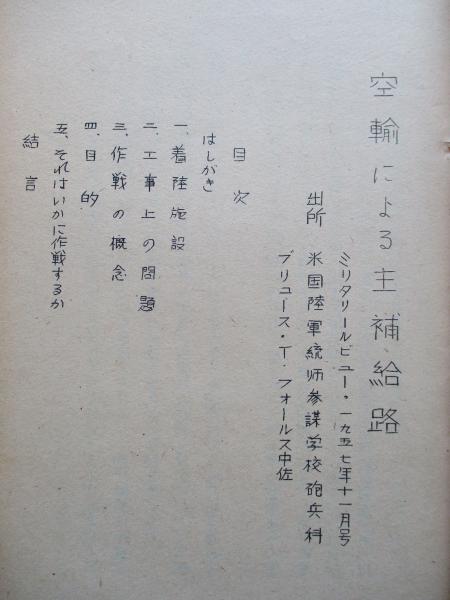 空輸による主補給路
ミリタリールビュー・一九五七年十一月号
出所 米国陸軍統帅参謀学校砲兵科
ブリュース・T・フォールス中佐
目次
はしがき
一、着陸施設
二、工事上の問題
三、作戦の概念
四、目的
五、それはいかに作戦するか
結言